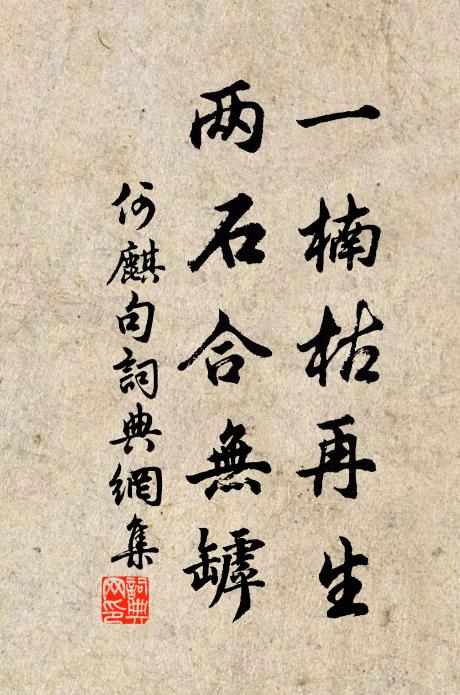 一楠枯再生
两石合無罅
何麒句詞典網集
詞典网印